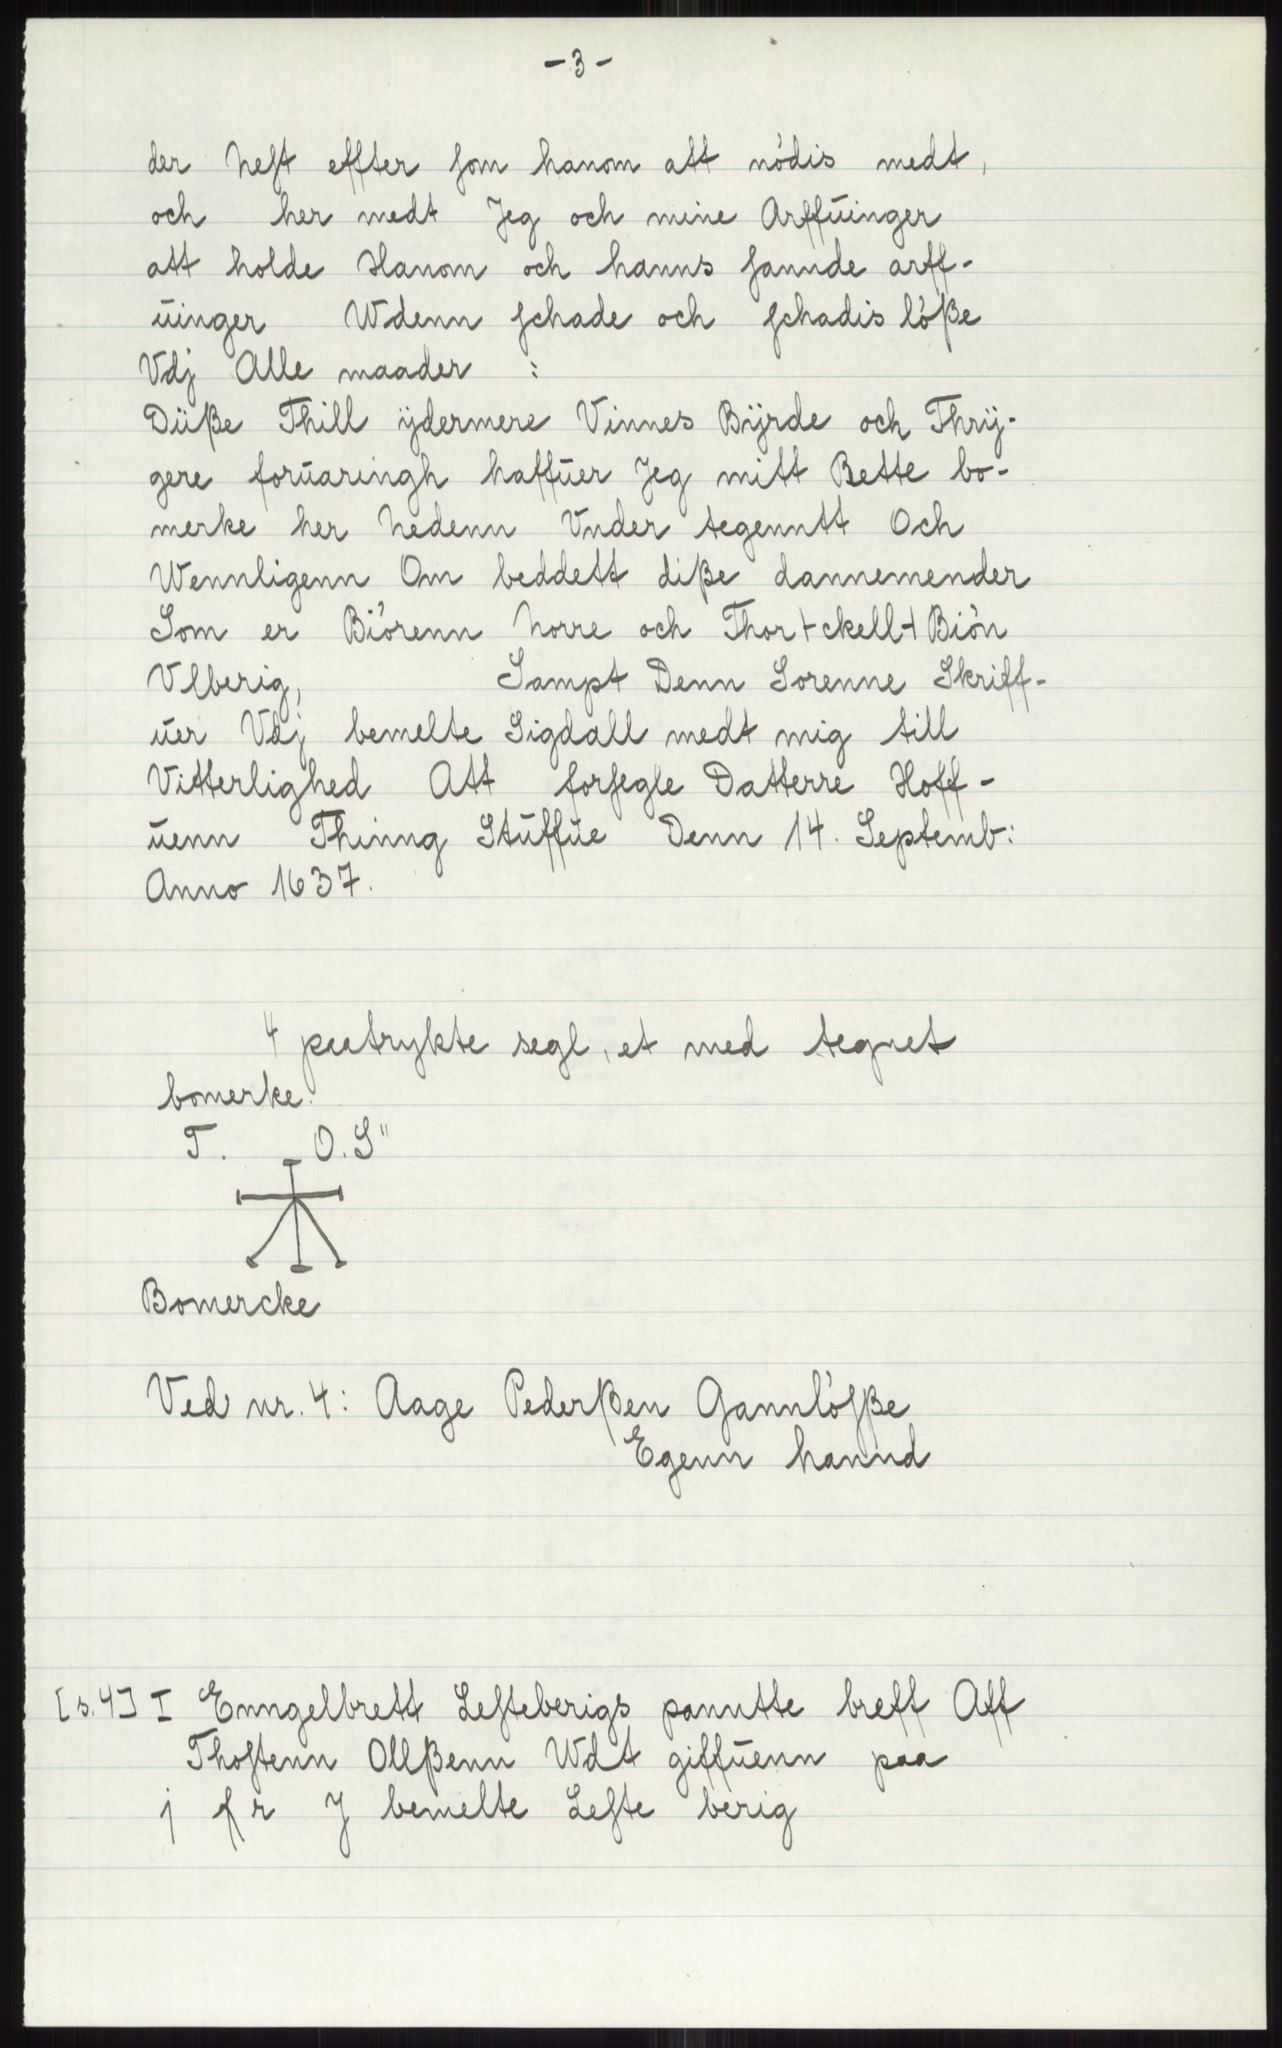 - 3 -
der heſt effter ſom hanom att nödis medt,
och her medt Jeg och mine Arffŭinger
att holde Hanom och hanns ſannde arff-
ŭinger Wdenn ſchade och ſchadis löſße
Vdj Alle maader :
Düße Thill ÿdermere Vinnes Bÿrde och Thrÿ-
gere forŭaringh haffŭer Jeg mitt Bette bo-
merke her hedenn Vnder tegenntt Och
Wennligenn Om beddett diße dannemender
Som er Biörenn horre och Thor+ckell+ Biön
Vlberig, Sampt Denn Sorenne Skriff-
ŭer Vdj bemelte Sigdall medt mig till
Vitterlighed Att forſegle Datterre Hoff-
ŭenn Thinng Stŭffŭe Denn 14. Septemb:
Anno 1637.
4 paatrykte segl, et med tegnet
bomerke.
T. O.S"
Bomercke
Ved nr. 4: Aage Pederßen Gannlöſße
Egenn hannd
[s.4] I Enngelbrett Leſteberigs panntte breff Aff
Thoſtenn Ollßenn Wdt giffŭenn paa
j ſr J bemelte Leſte berig